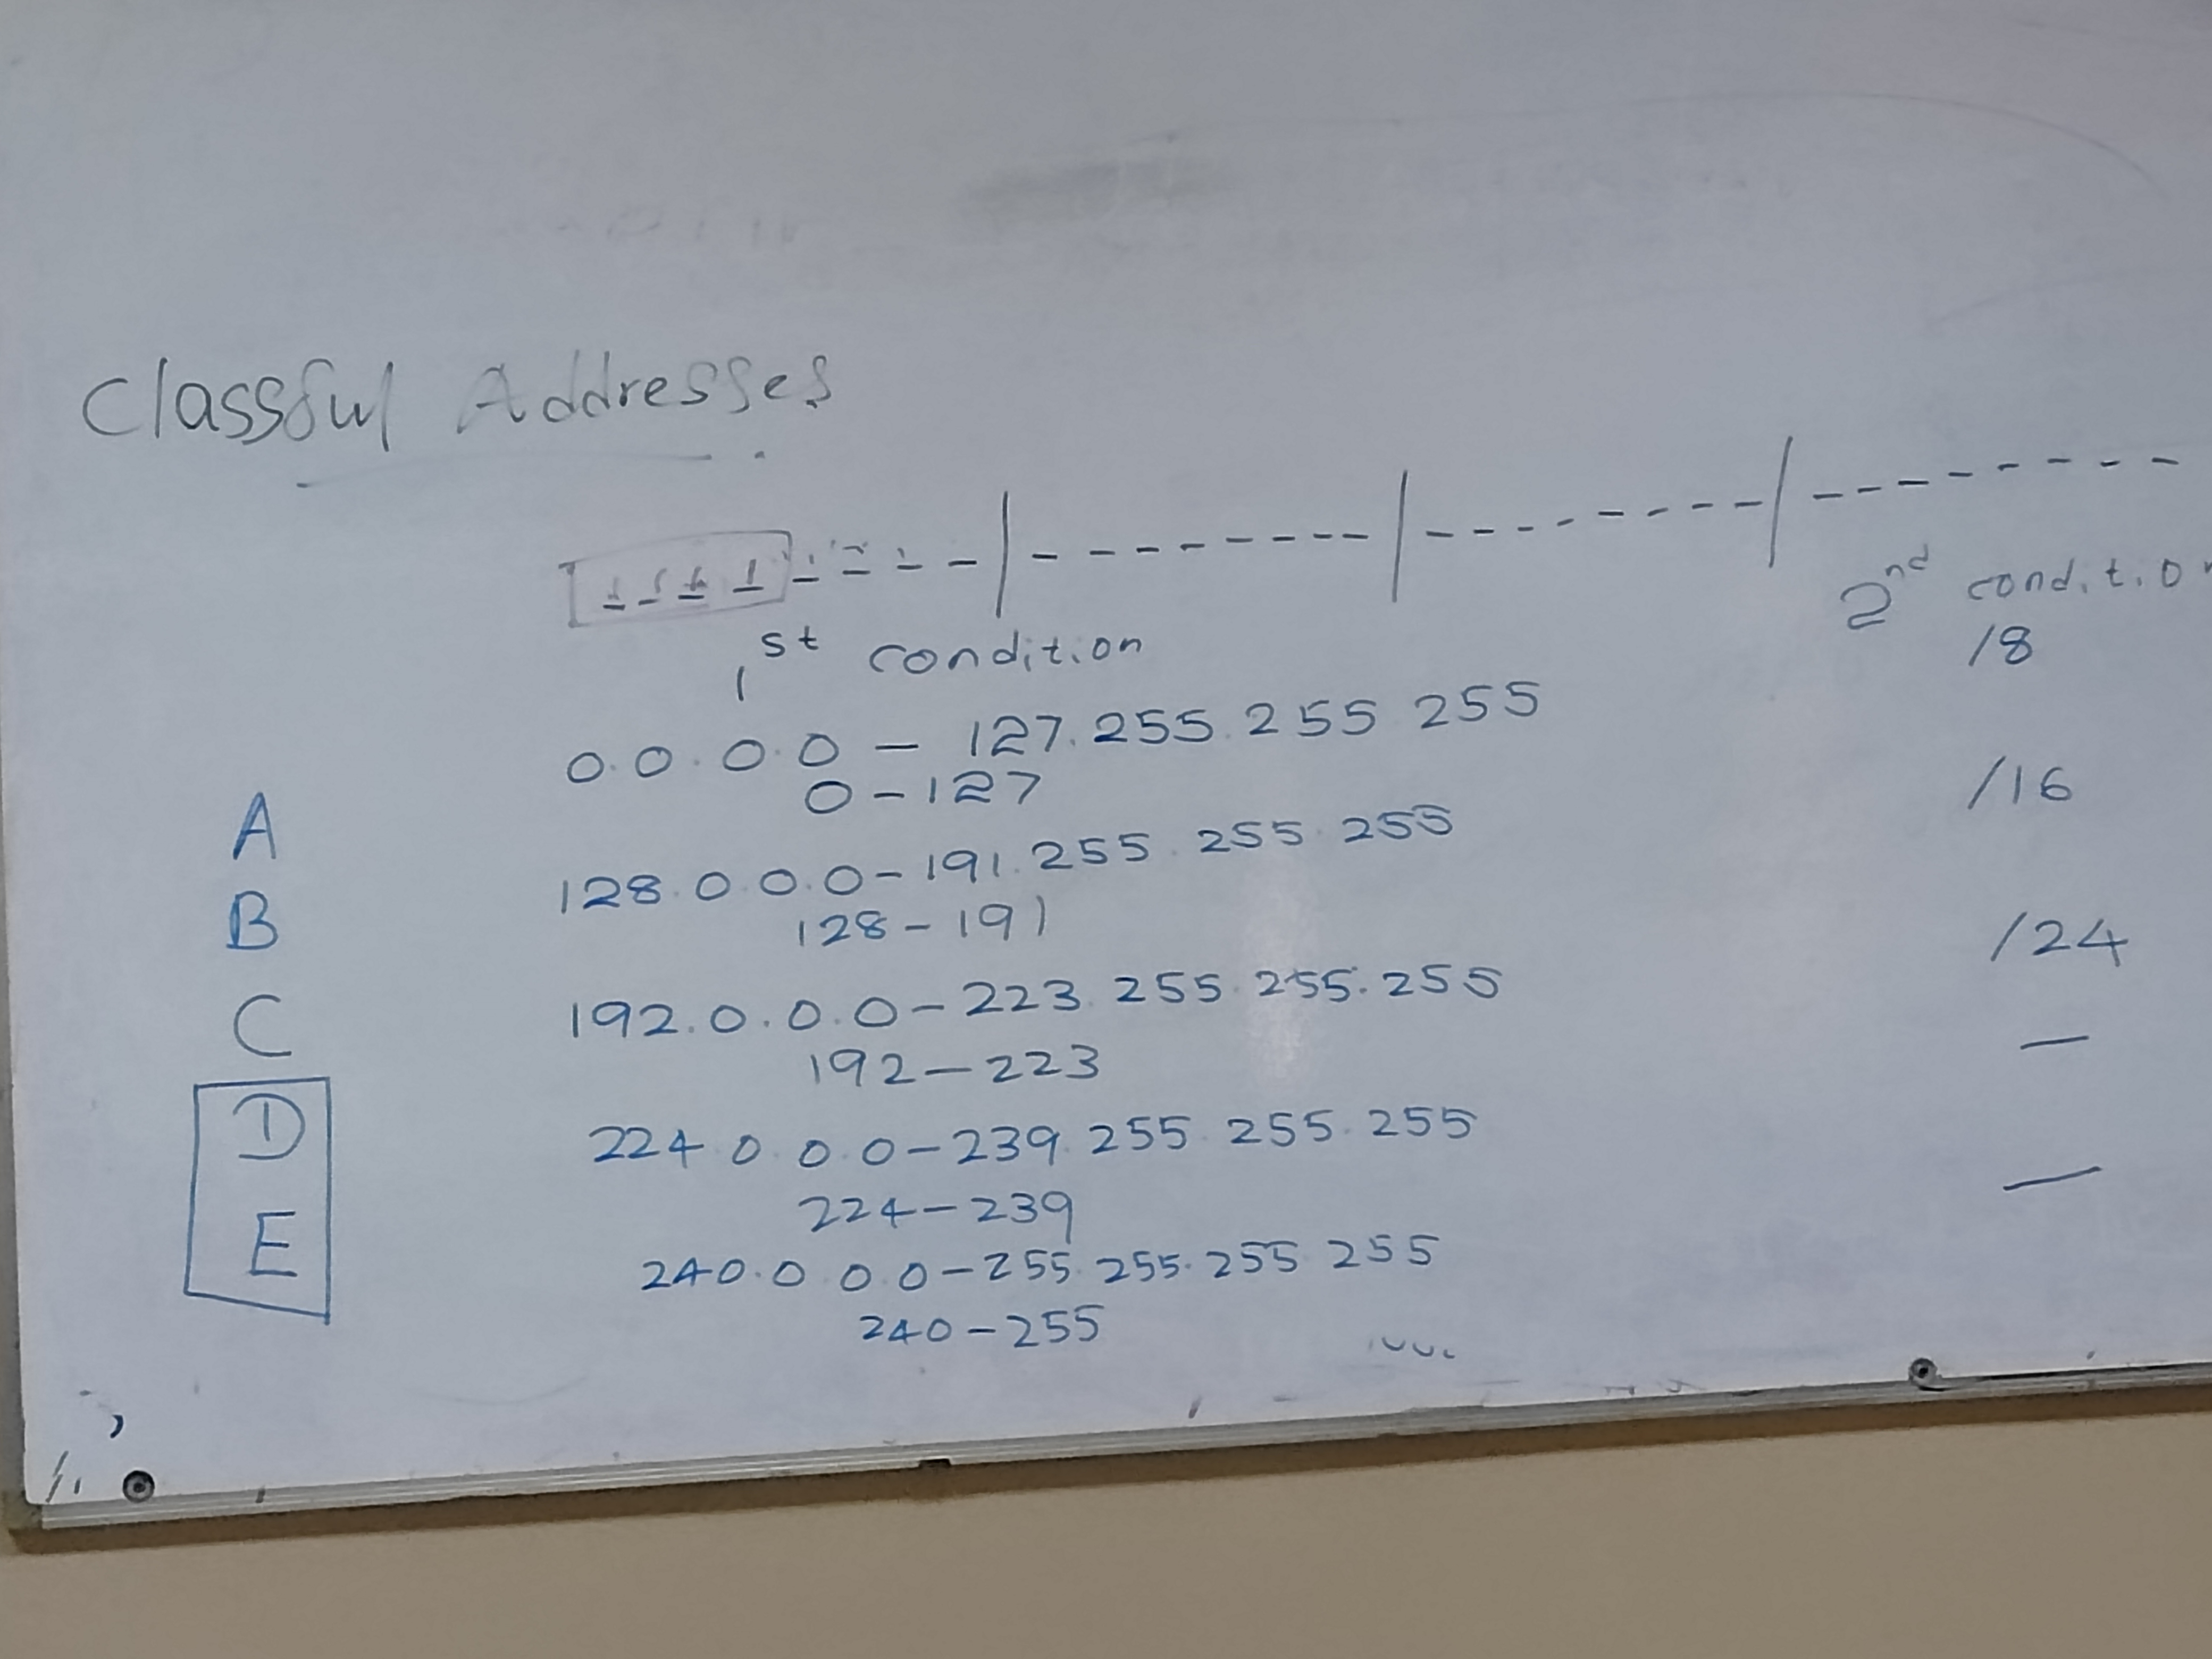 Classful Addresses
1 1 1 1
1st condition
2nd condition
/8
0.0.0.0 - 127.255.255 255
0-127
A
/16
128.0 0.0-191.255.255.255
128-191
B
/24
192.0.0.0-223.255.255.255
192-223
C
—
224.0.0.0-239.255 255.255
224-239
D
—
240.0 0.0-255.255.255 255
240-255
E